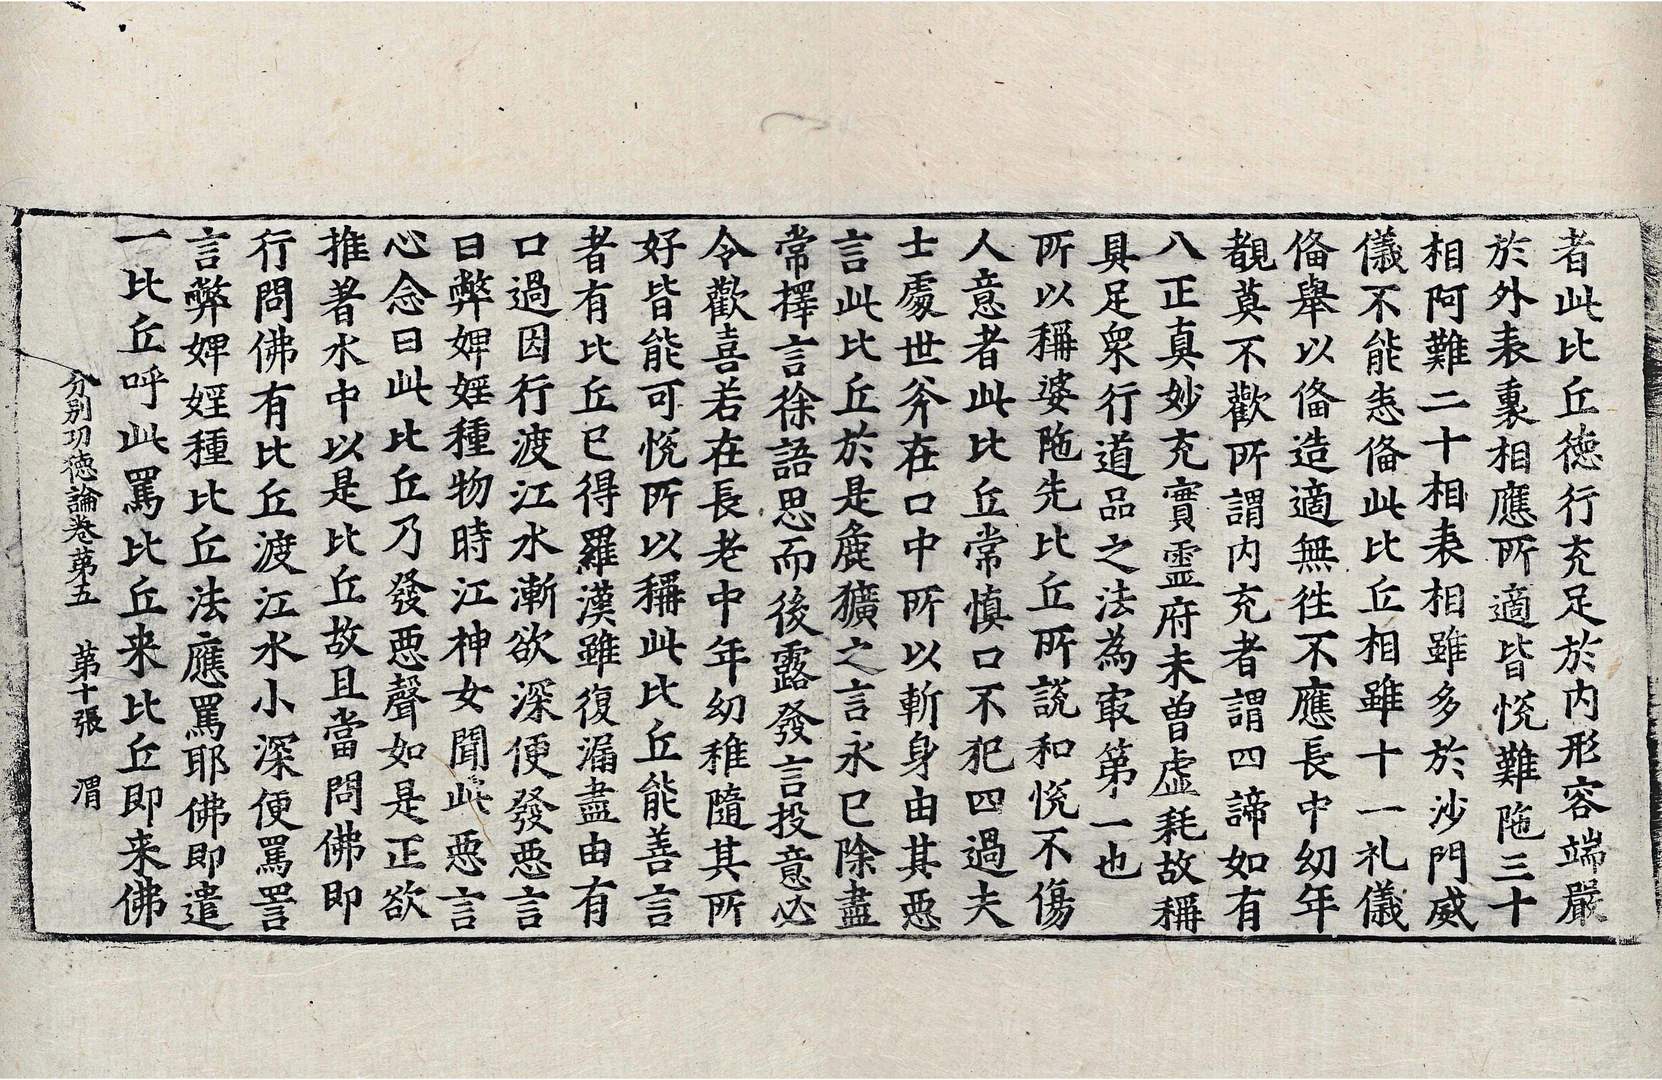 者此比丘德行充足於内形容端嚴
於外表裏相應所適皆恱難陁三十
相阿難二十相表相雖多於沙門威
儀不能悉俻此比丘相雖十一礼儀
俻舉以俻造適無徃不應長中幼年
覩莫不歡所謂内充者謂四諦如有
八正真妙充實霊府未曽虚耗故稱
具足衆行道品之法為㝡第一也
所以稱婆陁先比丘所說和恱不傷
人意者此比丘常慎口不犯四過夫
士處世斧在口中所以斬身由其惡
言此比丘於是麁獷之言永已除盡
常擇言徐語思而後露發言投意必
令歡喜若在長老中年幼稚隨其所
好皆能可恱所以稱此比丘能善言
者有比丘已得羅漢雖復漏盡由有
口過因行渡江水漸欲深便發惡言
曰弊婢婬種物時江神女聞此惡言
心念曰此比丘乃發惡聲如是正欲
推著水中以是比丘故且當問佛即
行問佛有比丘渡江水小深便罵詈
言弊婢婬種比丘法應罵耶佛即遣
一比丘呼此罵比丘来比丘即来佛
分别功德論卷苐五 苐十張 渭